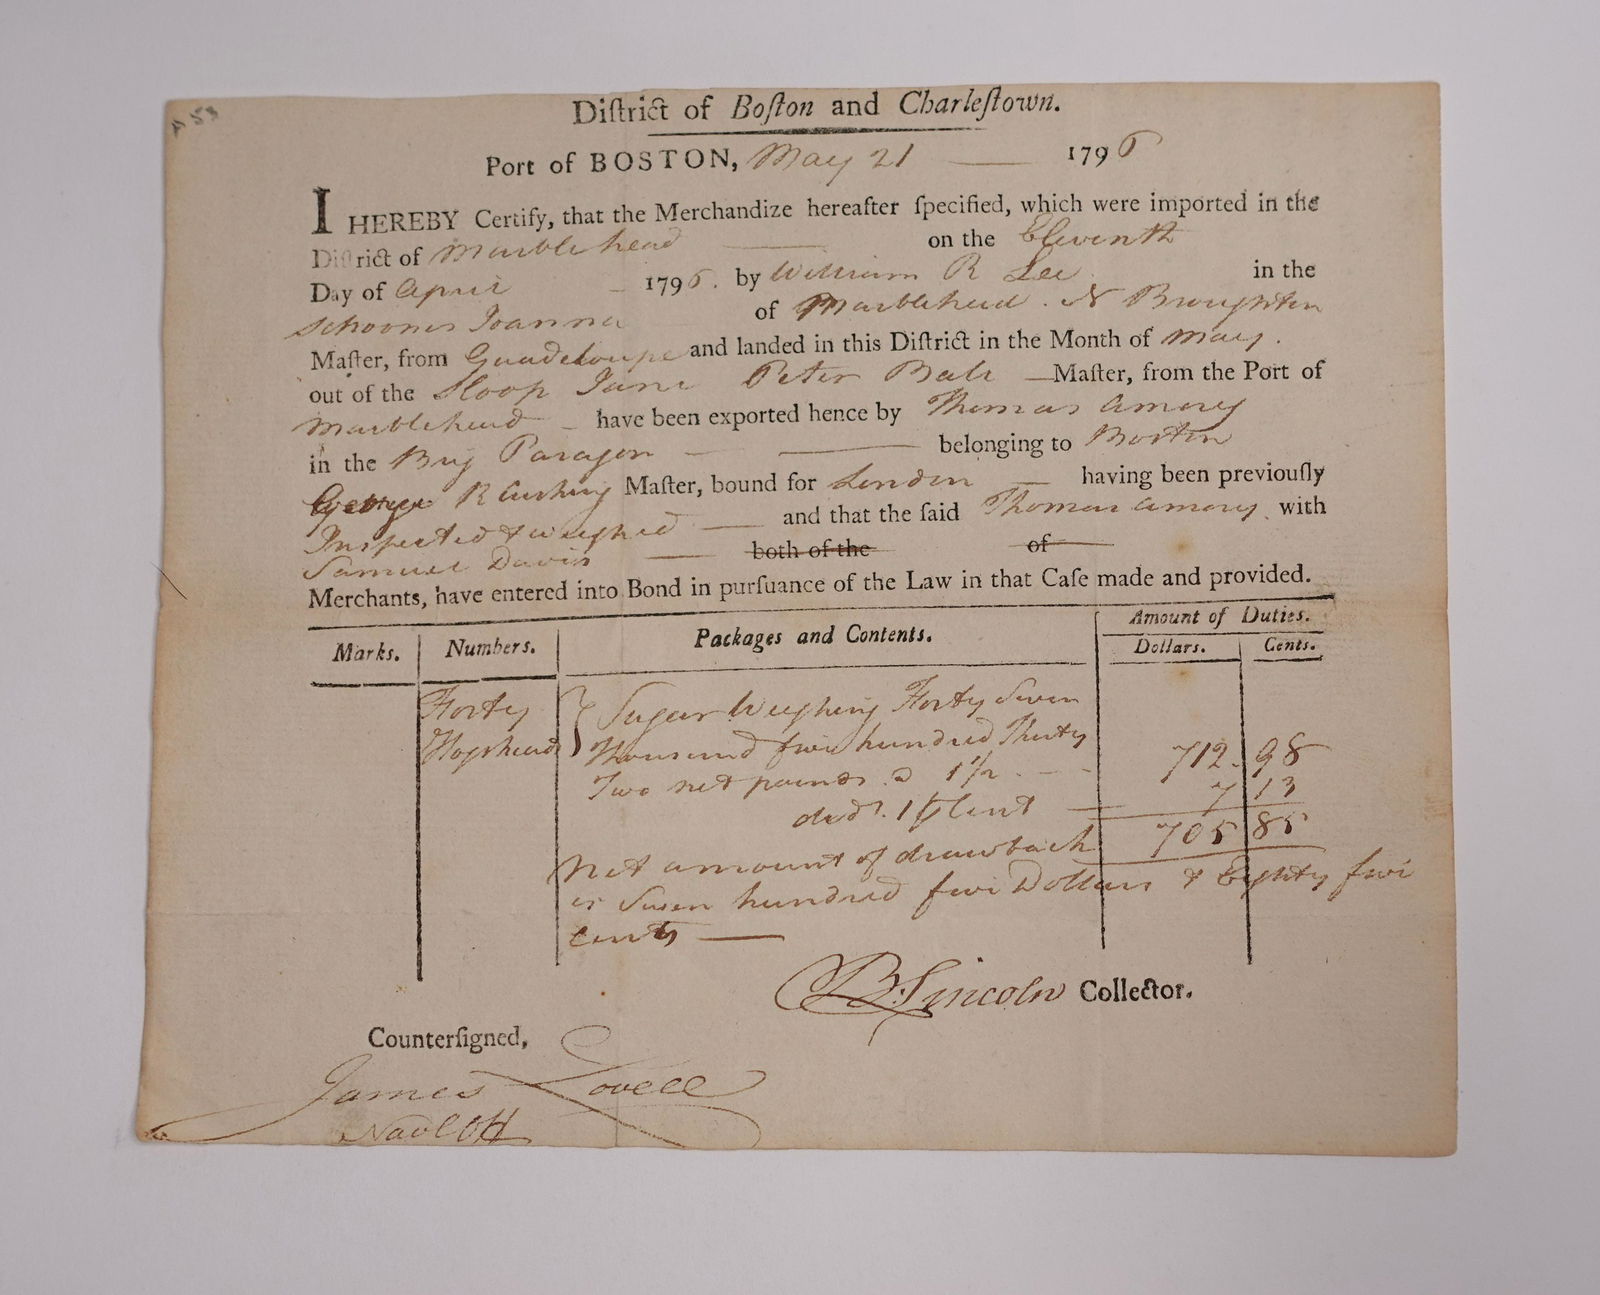 A 53
Diſtrict of Boſton and Charleſtown.
Port of BOSTON, May 21 — 1796
I HEREBY Certify, that the Merchandize hereafter ſpecified, which were imported in the
Diſtrict of Marblehead — on the Eleventh
Day of April 1796. by William R Lee in the
Schooner Joanna of Marblehead. N Broughton
Maſter, from Guadeloupe and landed in this Diſtrict in the Month of May.
out of the Sloop Jane Peter Bale — Maſter, from the Port of
Marblehead — have been exported hence by Thomas Amory
in the Brig Paragon — belonging to Boston
George R Cushing Maſter, bound for London — having been previouſly
Inspected & weighed — and that the ſaid Thomas Amory with
Samuel Davis — both of the of
Merchants, have entered into Bond in purſuance of the Law in that Caſe made and provided.
Marks. Numbers. Packages and Contents. Amount of Duties.
Dollars. Cents.
Forty Sugar Weighing Forty Seven
Hogsheads Thousand five hundred Thirty
Two net pounds @ 1½ 712. 98
dedt. 1 ⅌ Cent — 7 13
705 85
Net amount of drawback
is Seven hundred five Dollars & Eighty five
cents —
B. Lincoln Collector.
Counterſigned,
James Lovell
Navl Off